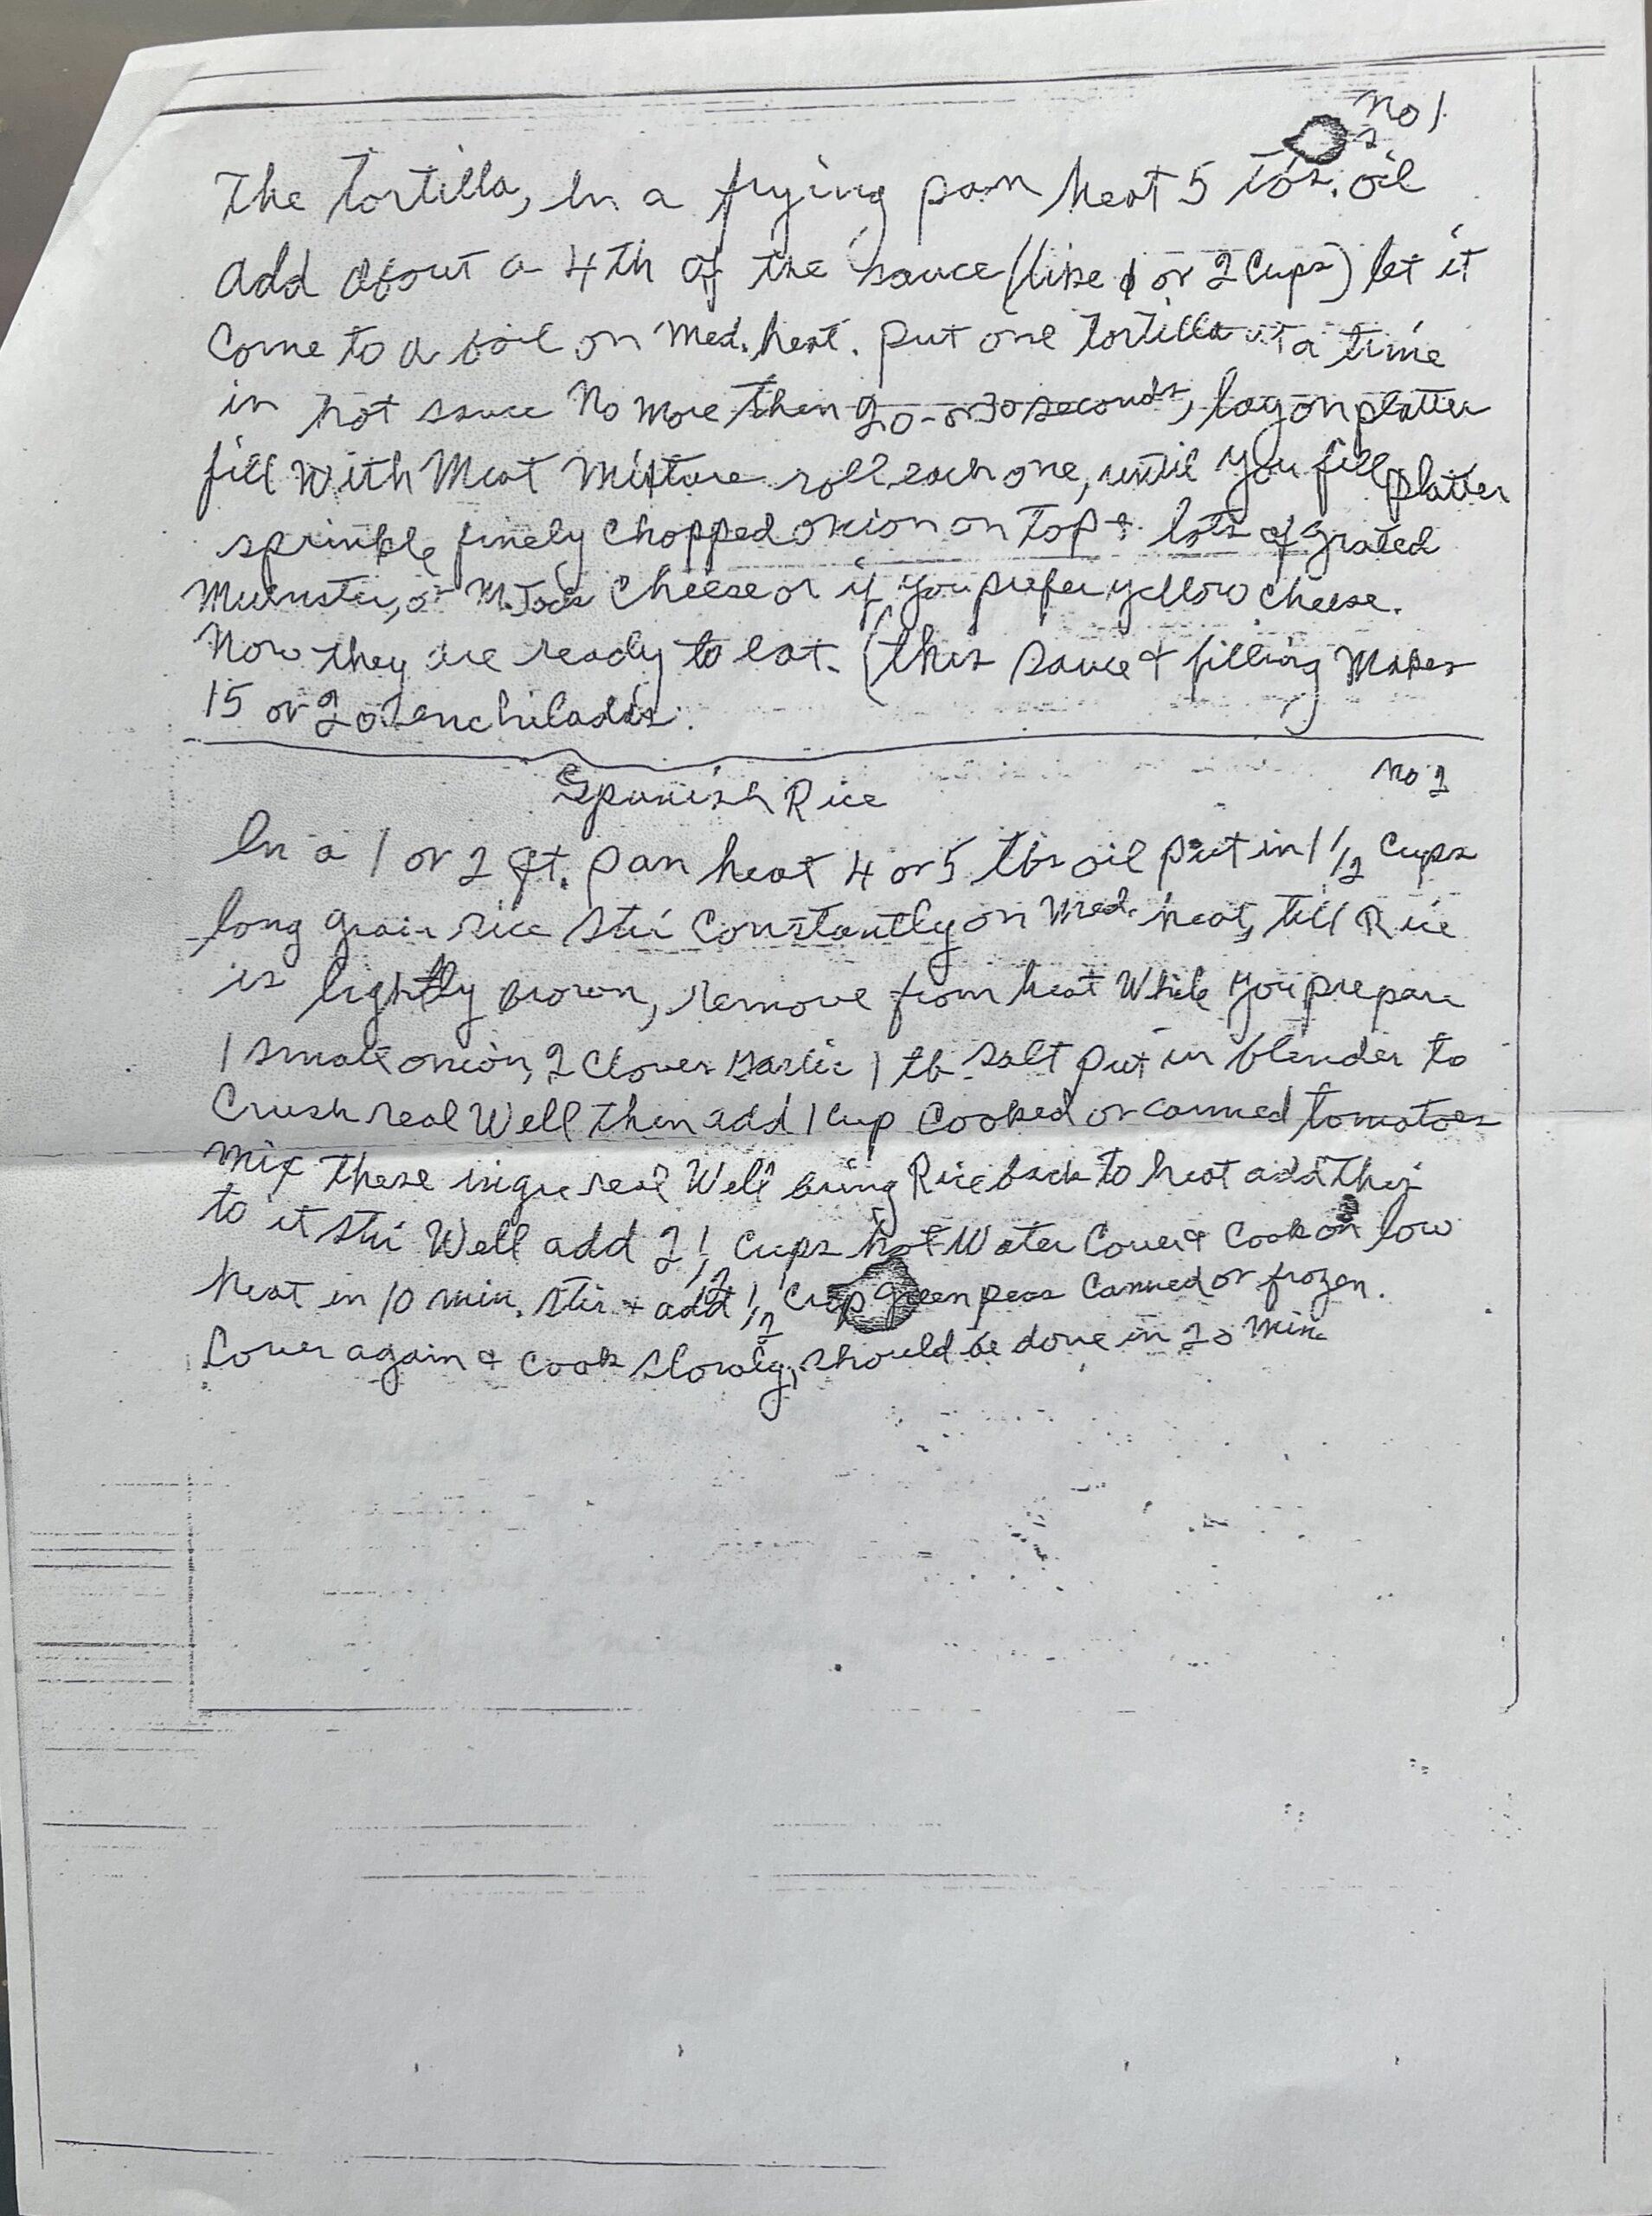 No 1
The Tortilla, In a frying pan heat 5 Tbs. oil
add about a 4th of the sauce (like 1 or 2 Cups) let it
Come to a boil on Med. heat. put one Tortilla at a time
in hot sauce No More then 20 - or 30 seconds, lay on platter
fill With Meat Mixture roll each one, until you fill platter
sprinkle finely Chopped onion on Top & lots of grated
Muenster, or M. Jack Cheese or if you prefer yellow cheese.
Now they are ready to eat. (this sauce & filling Makes
15 or 20 enchiladas.
No 2
Spanish Rice
In a 1 or 2 qt. pan heat 4 or 5 tbs oil put in 1 1/2 Cups
long grain rice Stir Constantly on Med. heat, till Rice
is lightly brown, remove from heat While you prepare
1 small onion, 2 Cloves Garlic 1 tb salt put in blender to
Crush real Well then add 1 cup Cooked or canned tomatoes
Mix these ingre real Well bring Rice back to heat add this
to it Stir Well add 2 1/2 Cups hot Water Cover & Cook on low
heat in 10 min. Stir & add 1/2 Cup green peas Canned or frozen.
Cover again & cook slowly, should be done in 20 Min.